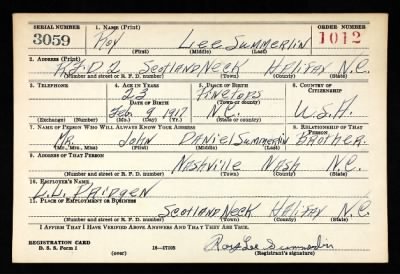 SERIAL NUMBER 1. NAME (Print) ORDER NUMBER
3059 Roy Lee Summerlin 1012
(First) (Middle) (Last)
2. ADDRESS (Print)
R.F.D 2 Scotland Neck Halifax N.C.
(Number and street or R. F. D. number) (Town) (County) (State)
3. TELEPHONE 4. AGE IN YEARS 5. PLACE OF BIRTH 6. COUNTRY OF CITIZENSHIP
23
DATE OF BIRTH (Town or county)
Feb. 9 1917 N.C. U.S.A.
(Exchange) (No.) (Mo.) (Day) (Yr.) (State or country)
7. NAME OF PERSON WHO WILL ALWAYS KNOW YOUR ADDRESS 8. RELATIONSHIP OF THAT PERSON
Mr. John Daniel Summerlin Brother
(Mr., Mrs., Miss) (First) (Middle) (Last)
9. ADDRESS OF THAT PERSON
Nashville Nash N.C.
(Number and street or R. F. D. number) (Town) (County) (State)
10. EMPLOYER'S NAME
11. PLACE OF EMPLOYMENT OR BUSINESS
Scotland Neck Halifax N.C.
(Number and street or R. F. D. number) (Town) (County) (State)
I AFFIRM THAT I HAVE VERIFIED ABOVE ANSWERS AND THAT THEY ARE TRUE.
REGISTRATION CARD
D. S. S. Form 1 (over) 16—17105 Roy Lee Summerlin
(Registrant's signature)